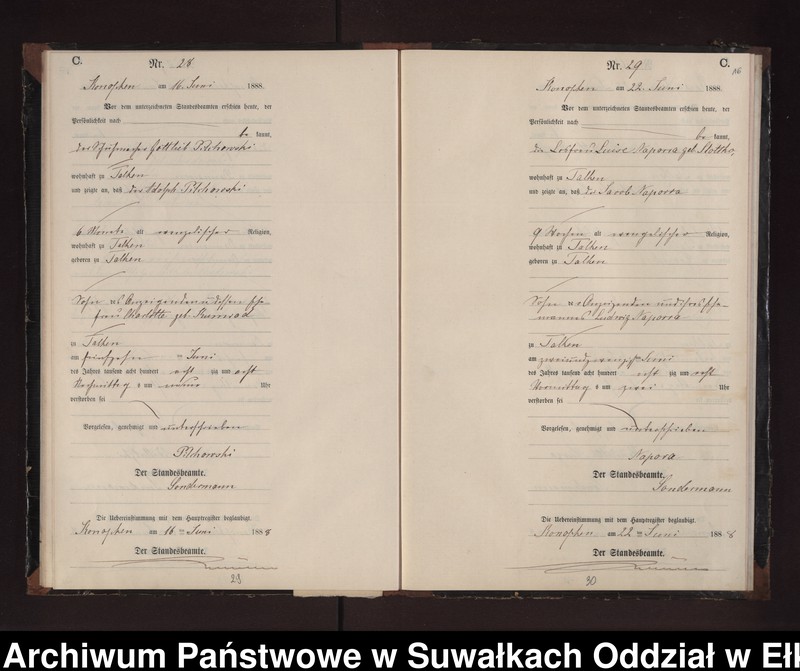 C.
Nr. 28
am 16. Juni 1888.
Vor dem unterzeichneten Standesbeamten erschien heute, der
Persönlichkeit nach
be kannt,
Gottlieb
wohnhaft zu Talken
und zeigte an, daß der Adolph
6 Monate alt evangelischer Religion,
wohnhaft zu Talken
geboren zu Talken
Sohn des Anzeigenden und dessen Ehe-
frau Charlotte geb.
zu Talken
am fünfzehn ten Juni
des Jahres tausend acht hundert acht zig und acht
Nachmittag s um neun Uhr
verstorben sei
Vorgelesen, genehmigt und unterschrieben
Der Standesbeamte.
Sondermann
Die Uebereinstimmung mit dem Hauptregister beglaubigt
am 16 ten Juni 1888
Der Standesbeamte.
29
Nr. 29
C.
am 22. Juni 1888.
Vor dem unterzeichneten Standesbeamten erschien heute, der
Persönlichkeit nach
be kannt,
die Losfrau Luise Napora geb.
wohnhaft zu Talken
und zeigte an, daß der Jacob Napora
9 Wochen alt evangelischer Religion,
wohnhaft zu Talken
geboren zu Talken
Sohn der Anzeigenden und ihres Ehe-
mannes Ludwig Napora
zu Talken
am zweiundzwanzigsten Juni
des Jahres tausend acht hundert acht zig und acht
Vormittag s um zwei Uhr
verstorben sei
Vorgelesen, genehmigt und unterschrieben
Napora
Der Standesbeamte.
Sondermann
Die Uebereinstimmung mit dem Hauptregister beglaubigt.
am 22 ten Juni 1888
Der Standesbeamte.
30
Archiwum Państwowe w Suwałkach Oddział w Eł